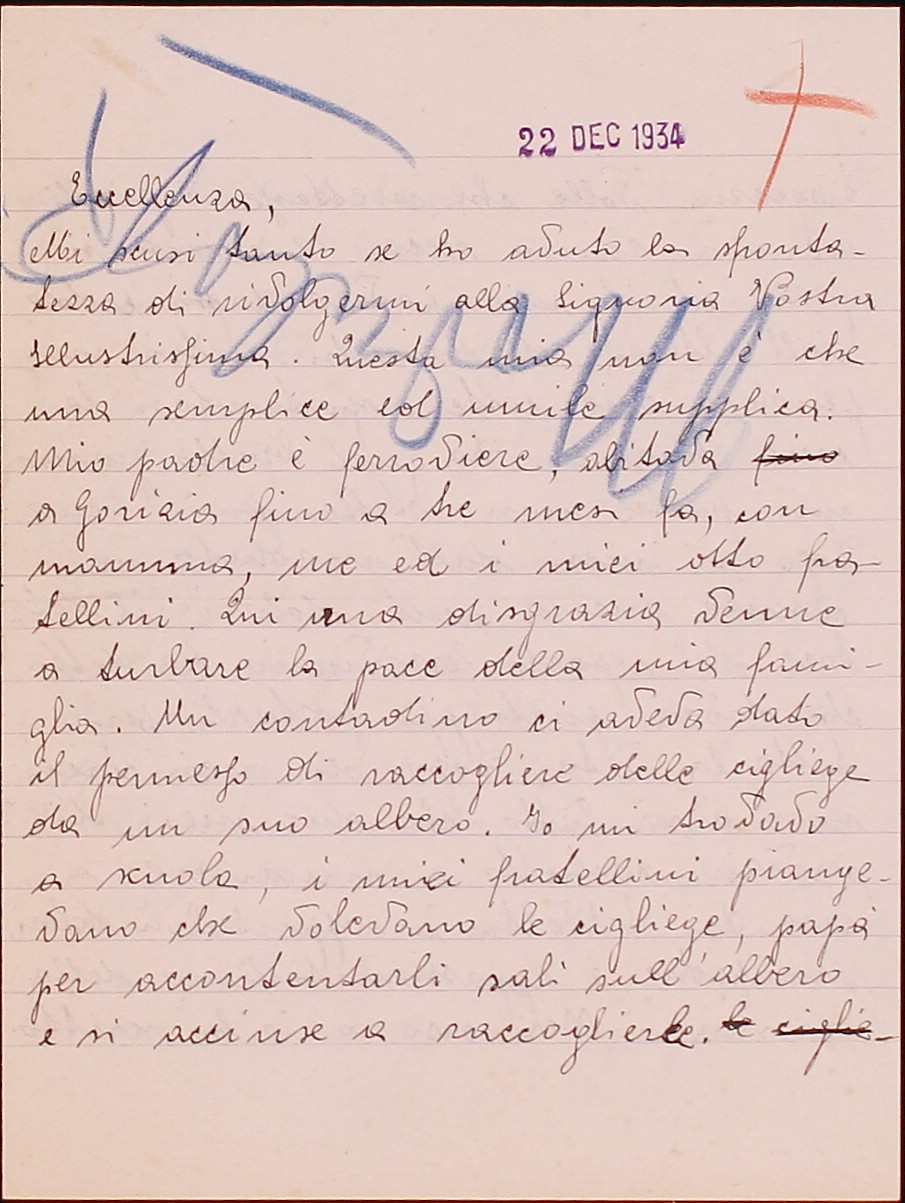 22 DEC 1934
Eccellenza,
Mi scusi tanto se ho avuto la sponta-
tezza di rivolgermi alla Signoria Vostra
Illustrissima. Questa mia non è che
una semplice ed umile supplica.
Mio padre è ferroviere, abitava fino
a Gorizia fino a tre mesi fa, con
mamma, me ed i miei otto fra-
tellini. Qui una disgrazia venne
a turbare la pace della mia fami-
glia. Un contadino ci aveva dato
il permesso di raccogliere delle cigliege
da un suo albero. Io mi trovavo
a scuola, i miei fratellini piange-
vano che volevano le cigliege, papà
per accontentarli salì sull'albero
e si accinse a raccoglierle. le ciglie-